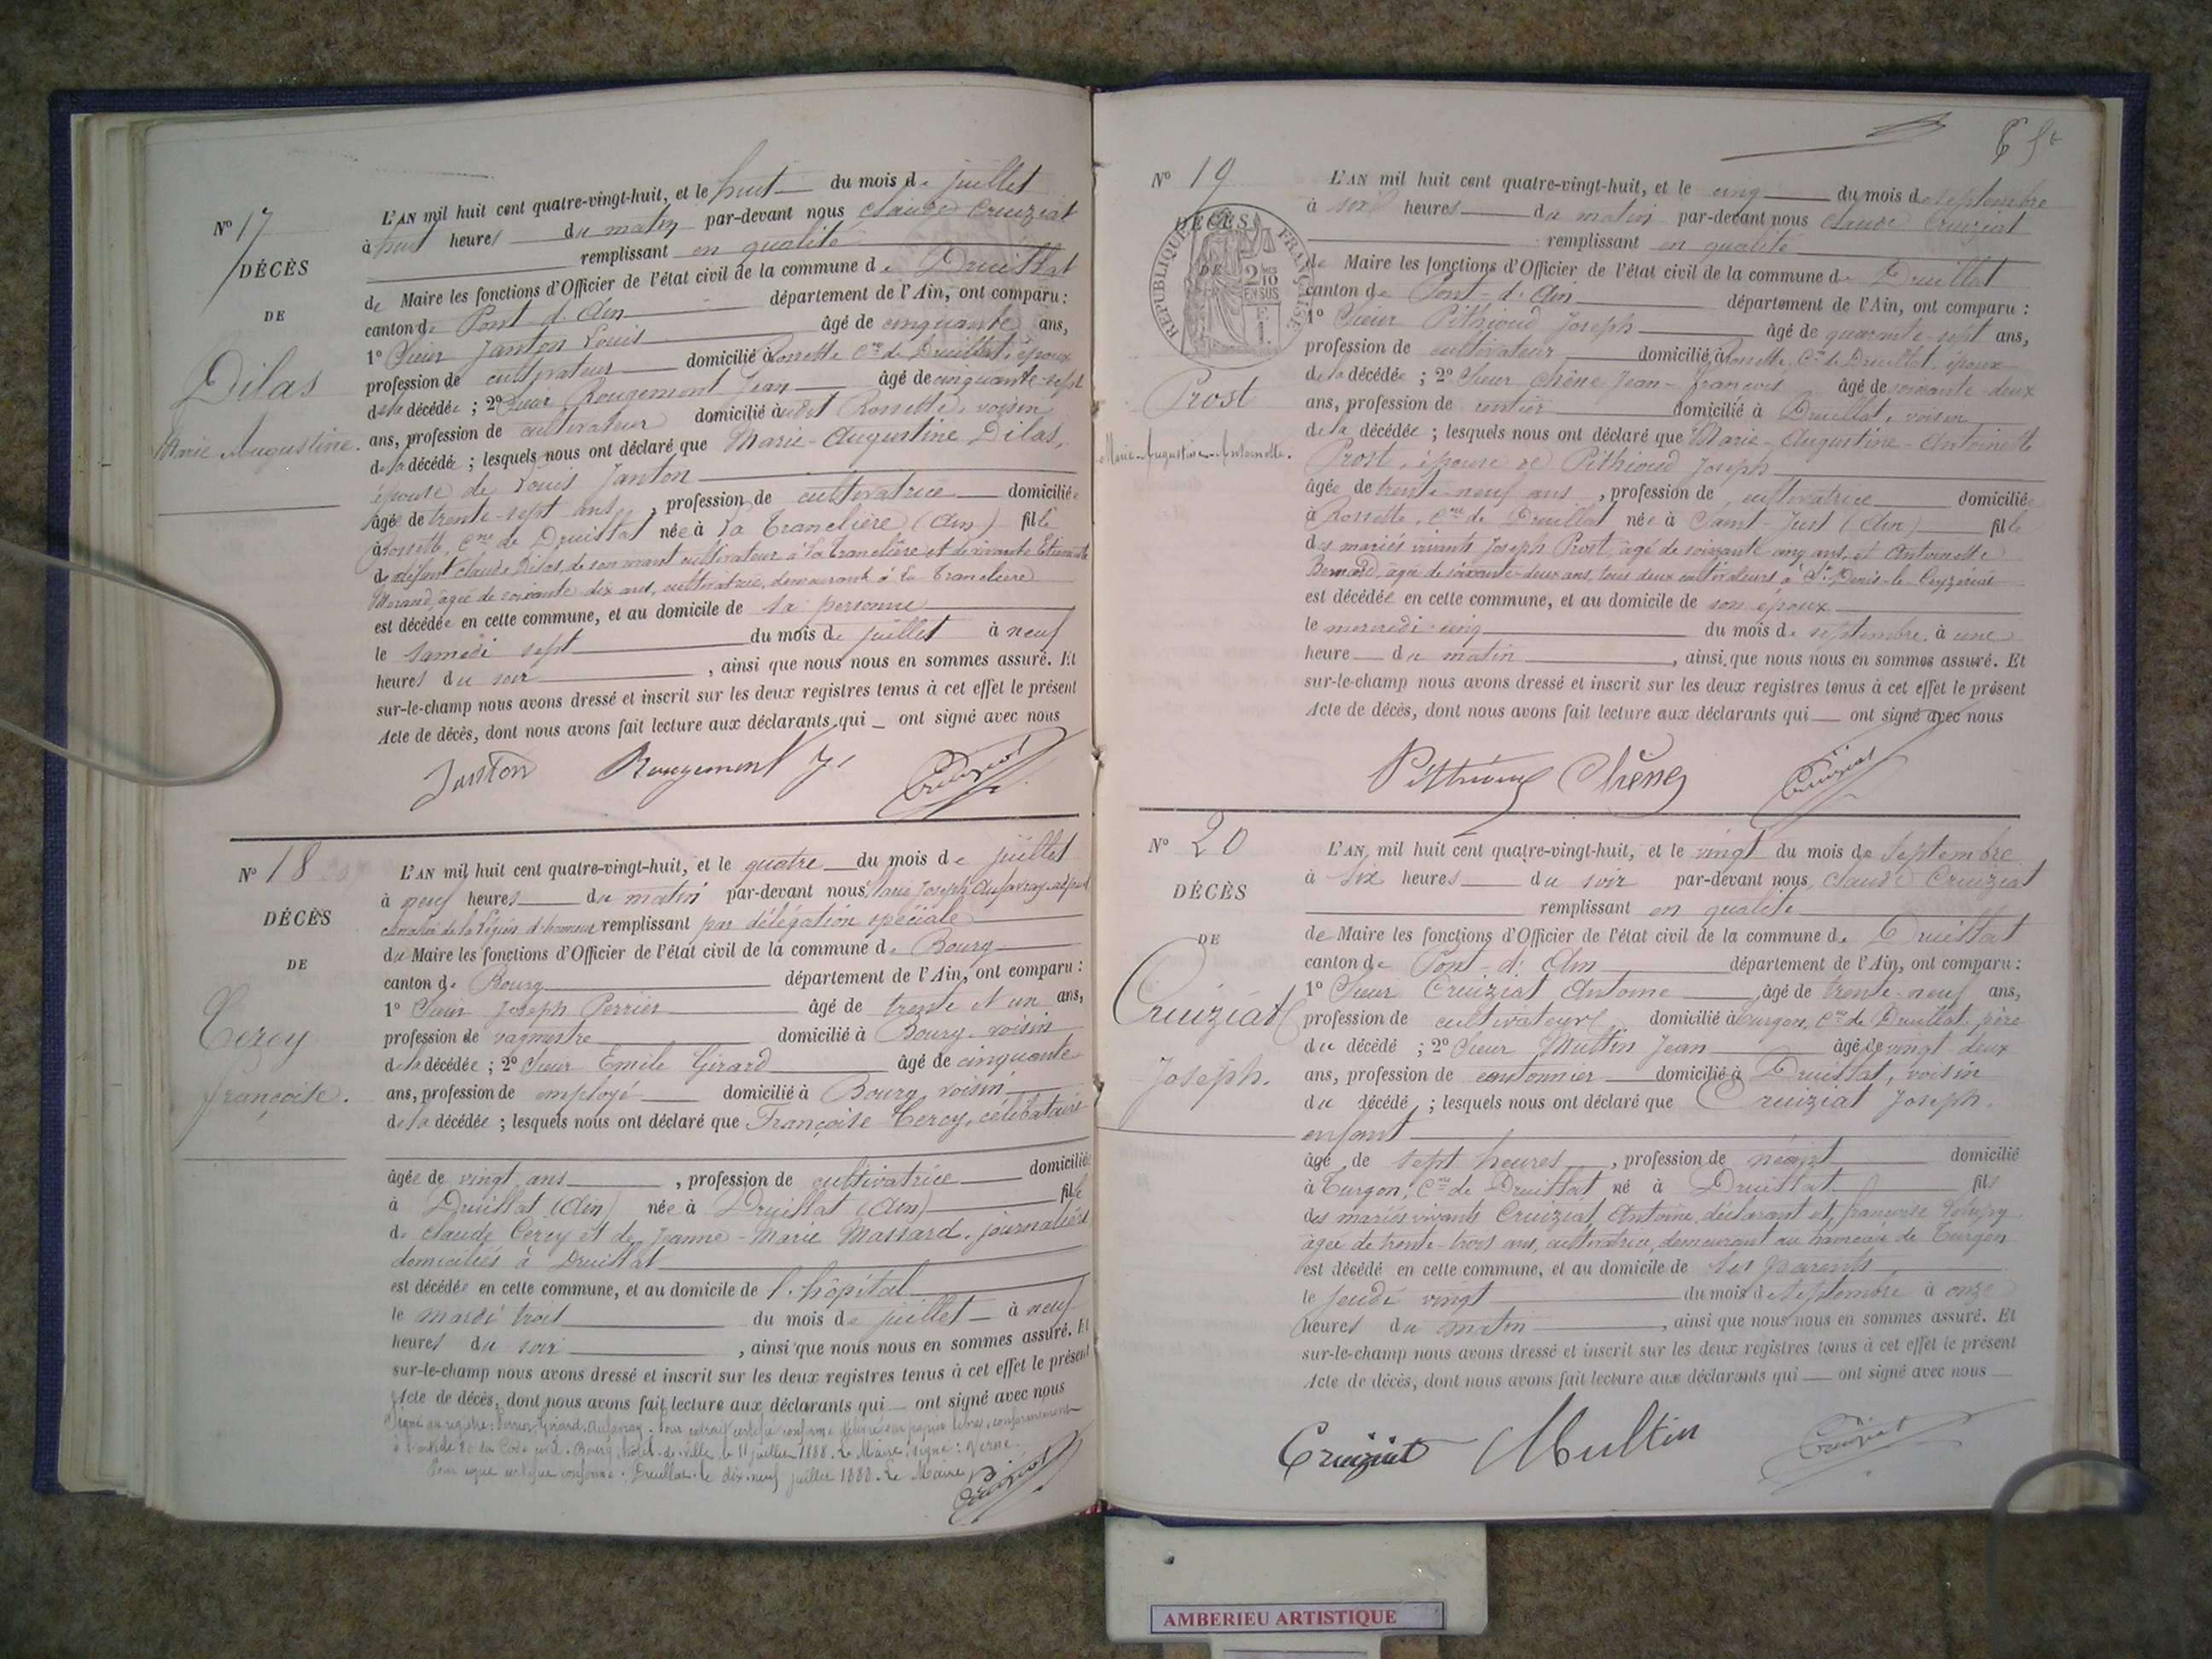 N° 17
DÉCÈS
DE
Dilas
Marie Augustine.
L'AN mil huit cent quatre-vingt-huit, et le huit du mois de juillet
à huit heures du matin par-devant nous Claude Cruiziat
remplissant en qualité
de Maire les fonctions d'Officier de l'état civil de la commune de Druillat
canton de Pont-d'Ain département de l'Ain, ont comparu :
1° Sieur Janton Louis âgé de cinquante ans,
profession de cultivateur domicilié à Rossette Cne de Druillat, époux
de la décédée ; 2° Sieur Rougemont Jean âgé de cinquante-sept
ans, profession de cultivateur domicilié audit Rossette, voisin
de la décédé ; lesquels nous ont déclaré que Marie-Augustine Dilas,
épouse de Louis Janton
âgée de trente-sept ans, profession de cultivatrice domiciliée
à Rossette, Cne de Druillat née à La Tranclière (Ain) fille
de défunt Claude Dilas, de son vivant cultivateur à La Tranclière et de vivante Etiennette
Morand, âgée de soixante dix ans, cultivatrice, demeurant à La Tranclière
est décédée en cette commune, et au domicile de sa personne
le samedi sept du mois de juillet à neuf
heures du soir, ainsi que nous nous en sommes assuré. Et
sur-le-champ nous avons dressé et inscrit sur les deux registres tenus à cet effet le présent
Acte de décès, dont nous avons fait lecture aux déclarants qui ont signé avec nous
Janton Rougemont J. Cruiziat
N° 18
DÉCÈS
DE
Cerey
Françoise.
L'AN mil huit cent quatre-vingt-huit, et le quatre du mois de juillet
à neuf heures du matin par-devant nous, Joseph Aufavray, adjoint
chevalier de la Légion d'honneur remplissant par délégation spéciale
du Maire les fonctions d'Officier de l'état civil de la commune de Bourg
canton de Bourg département de l'Ain, ont comparu :
1° Sieur Joseph Perrier âgé de trente et un ans,
profession de vagmestre domicilié à Bourg, voisin
de la décédée ; 2° Sieur Emile Girard âgé de cinquante
ans, profession de employé domicilié à Bourg, voisin
de la décédée ; lesquels nous ont déclaré que Françoise Cerey, célibataire
âgée de vingt ans, profession de cultivatrice domiciliée
à Druillat (Ain) née à Druillat (Ain) fille
de Claude Cerey et de Jeanne-Marie Massard, journaliers
domiciliés à Druillat
est décédée en cette commune, et au domicile de l'hôpital
le mardi trois du mois de juillet à neuf
heures du soir, ainsi que nous nous en sommes assuré. Et
sur-le-champ nous avons dressé et inscrit sur les deux registres tenus à cet effet le présent
Acte de décès, dont nous avons fait lecture aux déclarants qui ont signé avec nous
Signé au registre : Perrier, Girard, Aufavray. Pour extrait certifié conforme délivré sur papier libre, conformément
à l'article 80 du Code civil. Bourg, hôtel-de-ville, le 11 juillet 1888. Le Maire, signé : Verne.
Pour copie certifiée conforme : Druillat le dix-neuf juillet 1888. Le Maire,
Cruiziat
N° 19
DÉCÈS
DE
RÉPUBLIQUE FRANÇAISE
2/10
EN SUS
Prost
Marie-Augustine-Antoinette.
L'AN mil huit cent quatre-vingt-huit, et le cinq du mois de septembre
à six heures du matin par-devant nous Claude Cruiziat
remplissant en qualité
de Maire les fonctions d'Officier de l'état civil de la commune de Druillat
canton de Pont-d'Ain département de l'Ain, ont comparu :
1° Sieur Pithioud Joseph âgé de quarante-sept ans,
profession de cultivateur domicilié à Rossette, Cne de Druillat, époux
de la décédée ; 2° Sieur Chêne Jean-François âgé de soixante-deux
ans, profession de rentier domicilié à Druillat, voisin
de la décédée ; lesquels nous ont déclaré que Marie-Augustine-Antoinette
Prost, épouse de Pithioud Joseph
âgée de trente-neuf ans, profession de cultivatrice domiciliée
à Rossette, Cne de Druillat née à Saint-Just (Ain) fille
des mariés vivants Joseph Prost, âgé de soixante cinq ans, et Antoinette
Bernard, âgée de soixante-deux ans, tous deux cultivateurs à St Denis-le-Ceyzériat
est décédée en cette commune, et au domicile de son époux
le mercredi cinq du mois de septembre à une
heure du matin, ainsi que nous nous en sommes assuré. Et
sur-le-champ nous avons dressé et inscrit sur les deux registres tenus à cet effet le présent
Acte de décès, dont nous avons fait lecture aux déclarants qui ont signé avec nous
Pithioud Chêne Cruiziat
N° 20
DÉCÈS
DE
Cruiziat
Joseph.
L'AN mil huit cent quatre-vingt-huit, et le vingt du mois de septembre
à six heures du soir par-devant nous, Claude Cruiziat
remplissant en qualité
de Maire les fonctions d'Officier de l'état civil de la commune de Druillat
canton de Pont-d'Ain département de l'Ain, ont comparu :
1° Sieur Cruiziat Antoine âgé de trente-neuf ans,
profession de cultivateur domicilié à Turgon, Cne de Druillat, père
du décédé ; 2° Sieur Multin Jean âgé de vingt-deux
ans, profession de cantonnier domicilié à Druillat, voisin
du décédé ; lesquels nous ont déclaré que Cruiziat Joseph,
enfant
âgé de sept heures, profession de néant domicilié
à Turgon, Cne de Druillat né à Druillat fils
des mariés vivants Cruiziat Antoine, déclarant et Françoise
âgée de trente-trois ans, cultivatrice, demeurant au hameau de Turgon
est décédé en cette commune, et au domicile de ses parents
le jeudi vingt du mois de septembre à onze
heures du matin, ainsi que nous nous en sommes assuré. Et
sur-le-champ nous avons dressé et inscrit sur les deux registres tenus à cet effet le présent
Acte de décès, dont nous avons fait lecture aux déclarants qui ont signé avec nous
Cruiziat Multin Cruiziat
AMBERIEU ARTISTIQUE